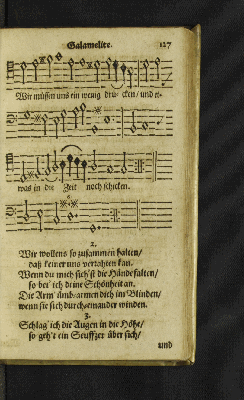 Galamelite. 127
Wir müssen uns ein wenig drücken/ und et-
was in die Zeit noch schicken.
2.
Wir wollens so zusammen halten/
daß keiner uns verrahten kan.
Wenn du mich sich'st die Hände falten/
so bet' ich deine Schönheit an.
Die Arm' ümbarmen dich im Blinden/
wenn sie sich durcheinander winden.
3.
Schlag' ich die Augen in die Höhe/
so geh't ein Seuffzer über sich/
und